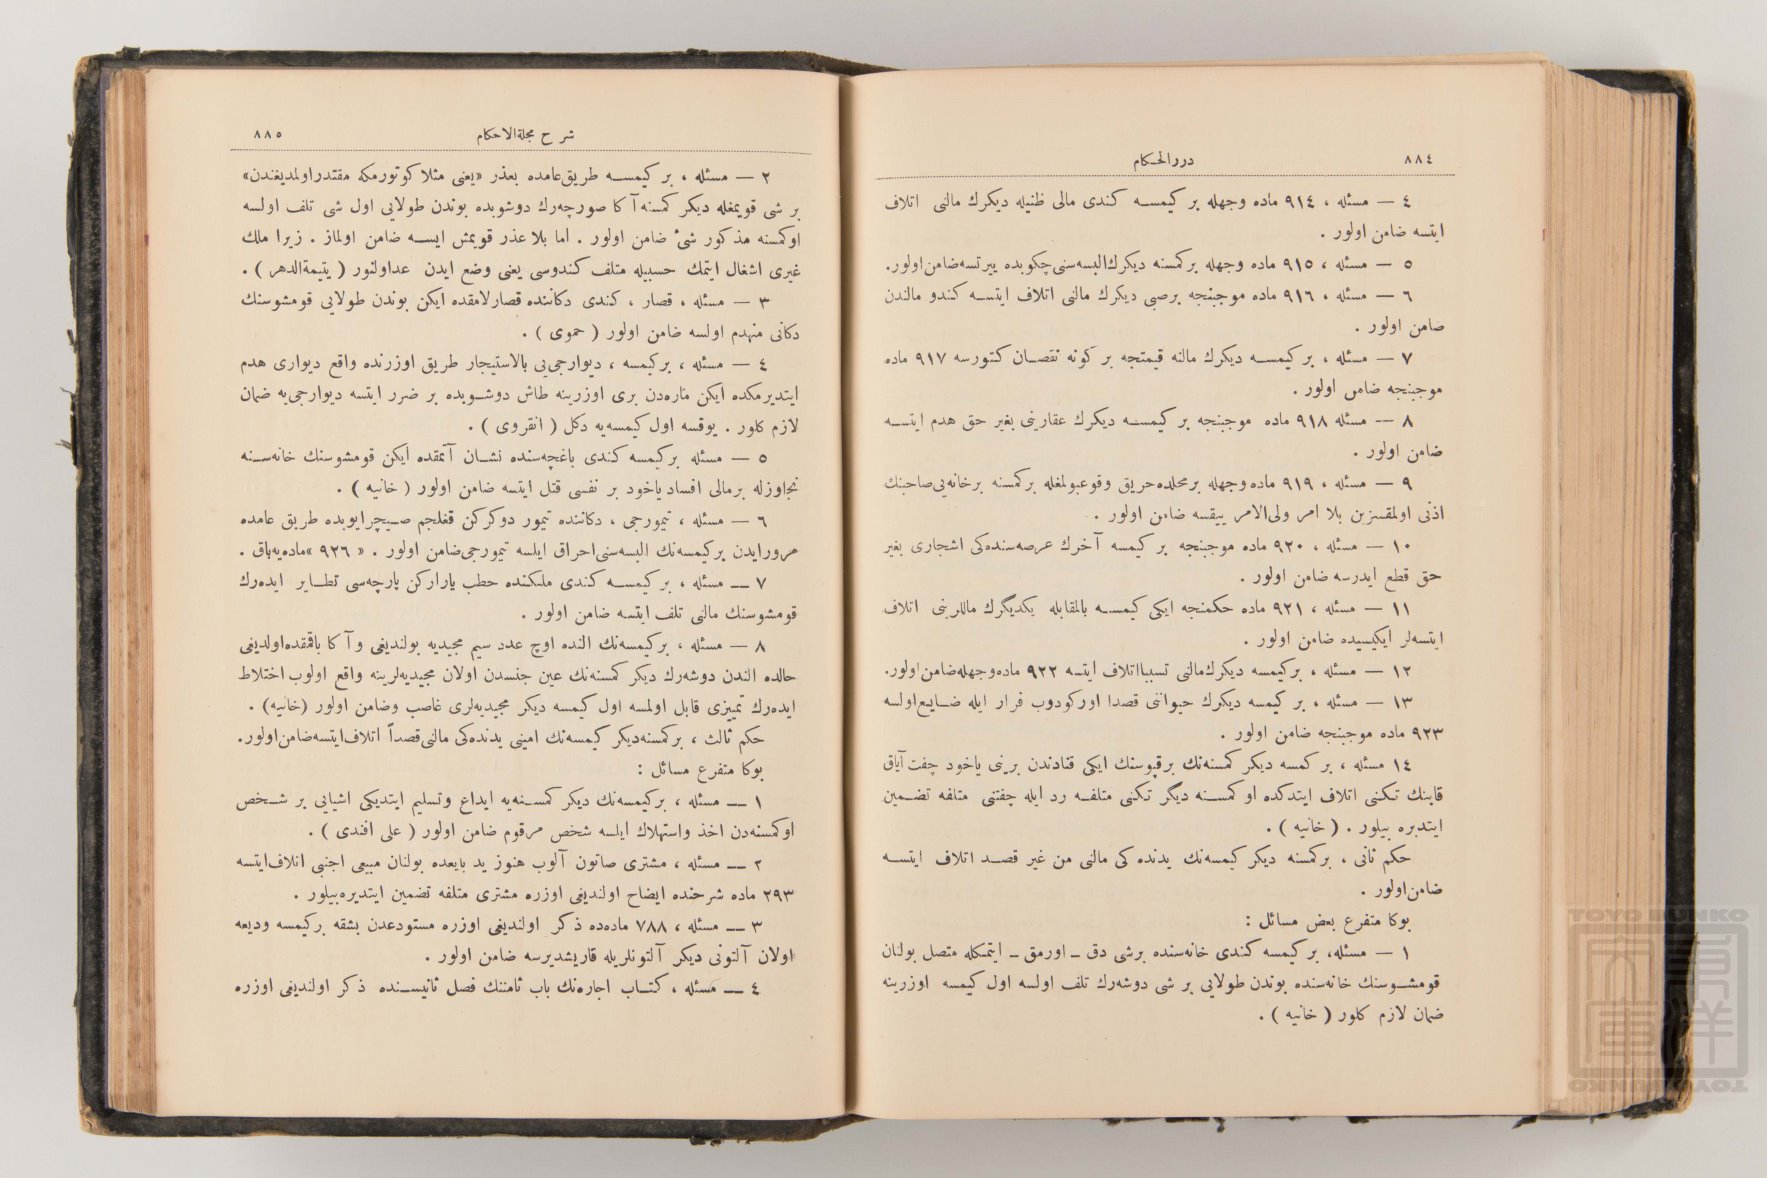 ٨٨٤
دررالحكام
٤ — مسئله ، ٩١٤ ماده وجهله بر كيمسه كندى مالى ظنيله ديكرك مالنى اتلاف
ايتسه ضامن اولور .
٥ — مسئله ، ٩١٥ ماده وجهله بركمسنه ديكرك‌البسه‌سنى‌چكوبده ييرتسه‌ضامن‌اولور.
٦ — مسئله ، ٩١٦ ماده موجبنجه برصبى ديكرك مالنى اتلاف ايتسه كندو مالندن
ضامن اولور .
٧ — مسئله ، بر كيمسه ديكرك مالنه قيمتجه بر كونه نقصان كتورسه ٩١٧ ماده
موجبنجه ضامن اولور .
٨ — مسئله ٩١٨ ماده موجبنجه بر كيمسه ديكرك عقارينى بغير حق هدم ايتسه
ضامن اولور .
٩ — مسئله ، ٩١٩ ماده وجهله برمحلده‌حريق وقوعبولمغله بركمسنه برخانه‌يى‌صاحبنك
اذنى اولمقسزين بلا امر ولى‌الامر ييقسه ضامن اولور .
١٠ — مسئله ، ٩٢٠ ماده موجبنجه بر كيمسه آخرك عرصه‌سنده‌كى اشجارى بغير
حق قطع ايدرسه ضامن اولور .
١١ — مسئله ، ٩٢١ ماده حكمنجه ايكى كيمسه بالمقابله يكديگرك ماللرينى اتلاف
ايتسه‌لر ايكيسيده ضامن اولور .
١٢ — مسئله ، بركيمسه ديكرك‌مالنى تسببااتلاف ايتسه ٩٢٢ ماده‌وجهله‌ضامن‌اولور.
١٣ — مسئله ، بر كيمسه ديكرك حيواننى قصدا اوركودوب فرار ايله ضايع‌اولسه
٩٢٣ ماده موجبنجه ضامن اولور .
١٤ مسئله ، بر كمسه ديكر كمسنه‌نك برقپوسنك ايكى قنادندن برينى ياخود چفت آياق
قابنك تكنى اتلاف ايتدكده او كمسنه ديگر تكنى متلفه رد ايله چفتنى متلفه تضمين
ايتدبره بيلور . ( خانيه ) .
حكم ثانى ، بركمسنه ديكر كيمسه‌نك يدنده كى مالنى من غير قصد اتلاف ايتسه
ضامن‌اولور .
بوكا متفرع بعض مسائل :
١ — مسئله، بر كيمسه كندى خانه‌سنده برشى دق ـ اورمق ـ ايتمكله متصل بولنان
قومشوسنك خانه‌سنده بوندن طولايى بر شى دوشه‌رك تلف اولسه اول كيمسه اوزرينه
ضمان لازم كلور ( خانيه ) .
شرح مجلةالاحكام
٨٨٥
٢ — مسئله ، بر كيمسه طريق‌عامده بعذر «يعنى مثلا كوتورمكه مقتدراولمديغندن»
بر شى قويمغله ديكر كمسنه آكا صورچه‌رك دوشوبده بوندن طولايى اول شى تلف اولسه
اوكمسنه مذكور شئ ضامن اولور . اما بلا عذر قويمش ايسه ضامن اولماز . زيرا ملك
غيرى اشغال ايتمك حسبيله متلف كندوسى يعنى وضع ايدن عداولنور ( يتيمةالدهر ) .
٣ — مسئله ، قصار ، كندى دكاننده قصارلامقده ايكن بوندن طولايى قومشوسنك
دكانى منهدم اولسه ضامن اولور ( حموى ) .
٤ — مسئله ، بركيمسه ، ديوارجى‌يى بالاستيجار طريق اوزرنده واقع ديوارى هدم
ايتديرمكده ايكن ماره‌دن برى اوزرينه طاش دوشوبده بر ضرر ايتسه ديوارجى‌يه ضمان
لازم كلور . يوقسه اول كيمسه‌يه دكل ( انقروى ) .
٥ — مسئله بركيمسه كندى باغچه‌سنده نشان آتمقده ايكن قومشوسنك خانه‌سنه
تجاوزله برمالى افساد ياخود بر نفسى قتل ايتسه ضامن اولور ( خانيه ) .
٦ — مسئله ، تيمورجى ، دكاننده تيمور دوكركن قغلجم صيچرايوبده طريق عامده
مرورايدن بركيمسه‌نك البسه‌سنى‌احراق ايلسه تيمورجى‌ضامن اولور . « ٩٢٦ »ماده‌يه‌باق .
٧ — مسئله ، بر كيمسه كندى ملكنده حطب يارارکن پارچه‌سى تطاير ايده‌رك
قومشوسنك مالنى تلف ايتسه ضامن اولور .
٨ — مسئله ، بركيمسه‌نك النده اوچ عدد سيم مجيديه بولنديغى وآكا باقمقده‌اولديغى
حالده الندن دوشه‌رك ديكر كمسنه‌نك عين جنسدن اولان مجيديه‌لرينه واقع اولوب اختلاط
ايده‌رك تمييزى قابل اولمسه اول كيمسه ديكر مجيديه‌لرى غاصب وضامن اولور (خانيه) .
حكم ثالث ، بركمسنه‌ديكر كيمسه‌نك امينى يدنده‌كى مالنى‌قصداً اتلاف‌ايتسه‌ضامن‌اولور.
بوكا متفرع مسائل :
١ — مسئله ، بركيمسه‌نك ديكر كمسنه‌يه ايداع وتسليم ايتديكى اشيايى بر شخص
اوكمسنه‌دن اخذ واستهلاك ايلسه شخص مرقوم ضامن اولور ( على افندى ) .
٢ — مسئله ، مشترى صاتون آلوب هنوز يد بايعده بولنان مبيعى اجنبى اتلاف‌ايتسه
٢٩٣ ماده شرحنده ايضاح اولنديغى اوزره مشترى متلفه تضمين ايتديره‌بيلور .
٣ — مسئله ، ٧٨٨ ماده‌ده ذكر اولنديغى اوزره مستودعدن بشقه بركيمسه وديعه
اولان آلتونى ديكر آلتونلريله قاريشديرسه ضامن اولور .
٤ — مسئله ، كتاب اجاره‌نك باب ثامننك فصل ثانيسنده ذكر اولنديغى اوزره
TOYO BUNKO
東洋文庫
TOYO BUNKO